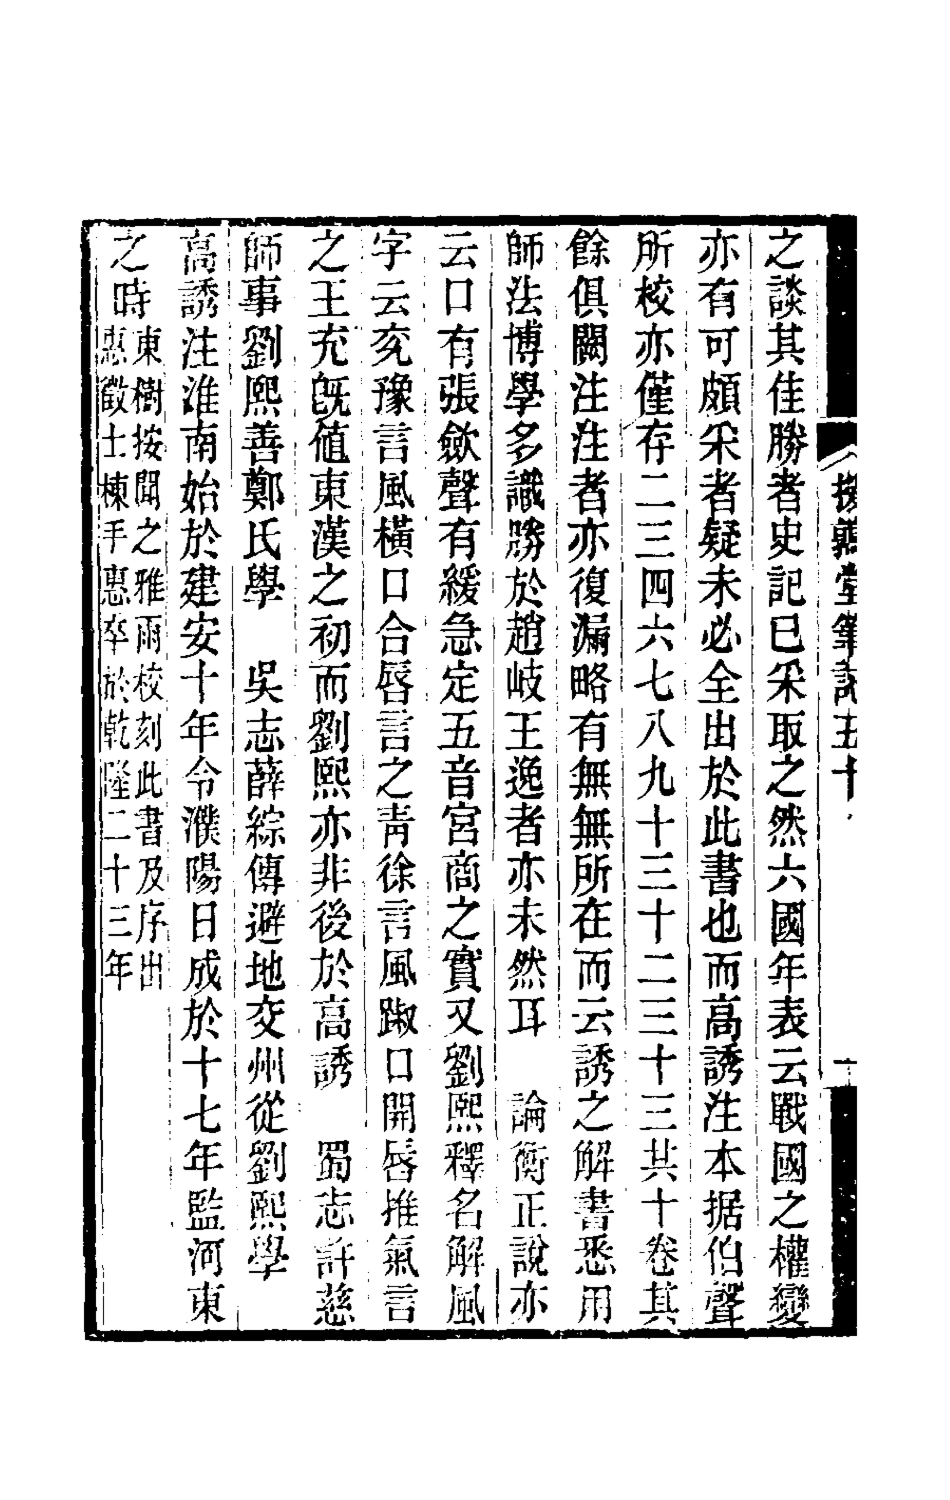 援鶉堂筆記五十
之談其佳勝者史記已采取之然六國年表云戰國之權變
亦有可頗采者疑未必全出於此書也而高誘注本据伯聲
所校亦僅存二三四六七八九十三十二三十三共十卷其
餘俱闕注注者亦復漏略有無無所在而云誘之解書悉用
師法博學多識勝於趙岐王逸者亦未然耳　論衡正說亦
云口有張歛聲有緩急定五音宮商之實又劉熙釋名解風
字云兖豫言風橫口合脣言之青徐言風踧口開脣推氣言
之王充旣値東漢之初而劉熙亦非後於高誘　蜀志許慈
師事劉熙善鄭氏學　吳志薛綜傳避地交州從劉熙學
高誘注淮南始於建安十年令濮陽日成於十七年監河東
之時
東樹按聞之雅雨校刻此書及序出
惠徵士棟手惠卒於乾隆二十三年